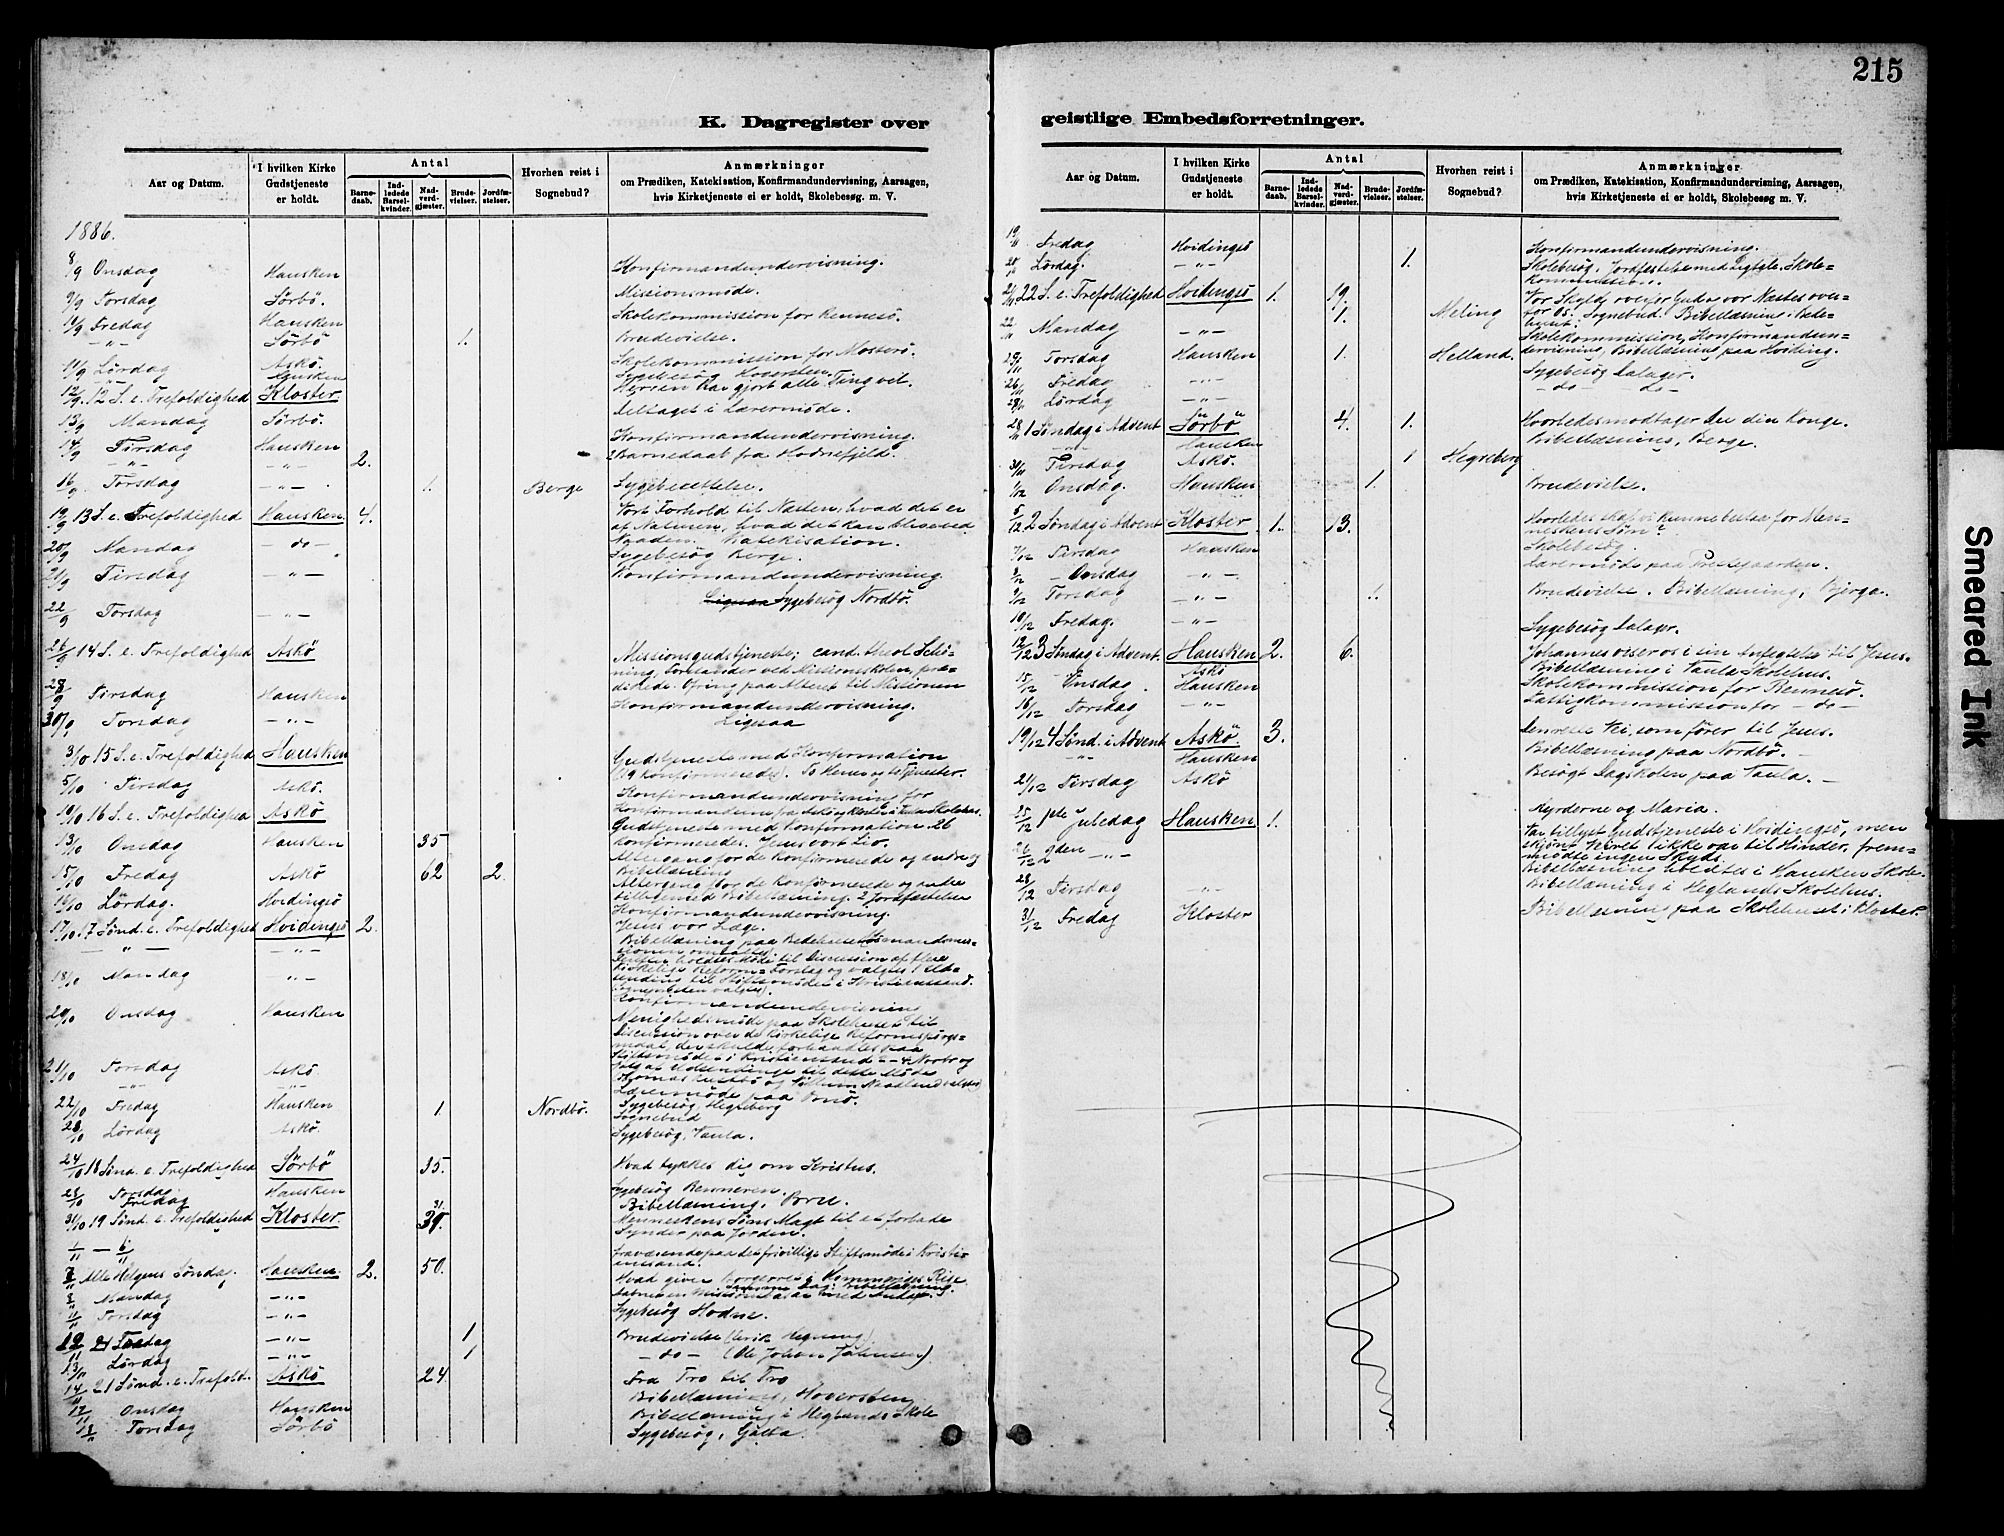 215
K. Dagregister over
geistlige Embedsforretninger.
Aar og Datum.
I hvilken Kirke Gudstjeneste er holdt.
Antal
Barne-daab.
Ind-ledede Barsel-kvinder.
Nad-verd-gjæster.
Brude-vielser.
Jordfæ-stelser.
Hvorhen reist i Sognebud?
Anmærkninger
om Prædiken, Katekisation, Konfirmandundervisning, Aarsagen,
hvis Kirketjeneste ei er holdt, Skolebesøg m. V.
1886.
8/9 Onsdag Hausken Konfirmandundervisning.
9/9 Torsdag Sörbö. Missionsmøde.
10/9 Fredag Hausken Skolekommission for Rennesö.
" Sörbö 1. Brudevielse.
11/9 Lördag Askö. Skolekommission for Mosterö.
Hausken Sygebesög Hoversten.
12/9 12 S. e. Trefoldighed Kloster Herren har gjort alle Ting vel.
13/9 Mandag Sörbö. Deltaget i Lærermøde.
14/9 Tirsdag Hausken Konfirmandundervisning.
" " 2. 2 Barnedaab fra Hodnefjeld.
16/9 Torsdag " 1. Berge Sygeberettelse.
19/9 13 S. e. Trefoldighed Hausken 4. Vort Forhold til Næsten, hvad det er
af Naturen, hvad det kan blive ved
Naaden. Katekisation.
20/9 Mandag do Sygebesøg Berge.
21/9 Tirsdag " Konfirmandundervisning.
22/9 Torsdag " Ligesaa Sygebesøg Nordbö.
26/9 14 S. e. Trefoldighed Askö Missionsgudstjeneste; cand. theol.
ning, Forstander ved Missionsskolen, præ-
dikede. Ofring paa Alteret til Missionen
28/9 Tirsdag Hausken Konfirmandundervisning.
30/9 Torsdag " Ligesaa
3/10 15 S. e. Trefoldighed Hausken Gudstjeneste med Konfirmation
5/10 Tirsdag Askö. Konfirmandundervisning for
10/10 16 S. e. Trefoldighed Askö Gudstjeneste med Konfirmation. 26
konfirmeredes. Jesus vort Liv.
13/10 Onsdag Hausken 35 Altergang for de Konfirmerede og andre
Bibellæsning
15/10 Fredag Askö 62 2. Altergang for de Konfirmerede og andre
tilligemed Bibellæsning. 2 Jordfæstelser
16/10 Lördag. Hvidingsö Konfirmandundervisning.
17/10 17 Sönd. e. Trefoldighed Hvidingsö 2. Jesus vor Læge.
" " Bibellæsning paa Bedehuset
18/10 Mandag "
20/10 Onsdag Hausken Konfirmandundervisning
Menighedsmøde paa Skolehuset til
Discussion over de kirkelige Reformspörgs-
maal, der skulde forhandles paa
Stiftsmödet i Kristianssand 2-4 Novbr og
21/10 Torsdag Askö. Valg af Udsendinge til dette Möde
" " Lærermöde paa
22/10 Fredag Hausken 1 Nordbö. Sygebesög, Hegreberg
Sognebud
23/10 Lördag Askö. Sygebesög, Vaula.
24/10 18 Sönd. e. Trefoldighed Sörbö 35. Hvad tykkes dig om Kristus.
28/10 Torsdag Hausken Sygebesög Renneren.
Fredag Bibellæsning, Bru.
31/10 19 Sönd. e. Trefoldighed Kloster. Menneskens Söns Magt til at forlade
Synder paa Jorden.
1/11 - 6/11 Fraværende paa det frivillige Stiftsmöde i Kristi-
anssand.
7/11 Alle Helgens Söndag. Hausken 2. 50.
8/11 Mandag "
11/11 Torsdag " Sygebesög Hodne.
12/11 Fredag " 1 Brudevielse
13/11 Lördag " 1 do (Ole Johan Johnsen)
14/11 21 Sönd. e. Trefold. Askö 24 Fra Tro til Tro
17/11 Onsdag Hausken Bibellæsning, Hoversten
Bibellæsning i Heglands Skole
18/11 Torsdag Sörbö Sygebesög, Galta
Aar og Datum.
I hvilken Kirke Gudstjeneste er holdt.
Antal
Barne-daab.
Ind-ledede Barsel-kvinder.
Nad-verd-gjæster.
Brude-vielser.
Jordfæ-stelser.
Hvorhen reist i Sognebud?
Anmærkninger
om Prædiken, Katekisation, Konfirmandundervisning, Aarsagen,
hvis Kirketjeneste ei er holdt, Skolebesøg m. V.
19/11 Fredag Hvidingsö Konfirmandundervisning.
20/11 Lördag. " 1. Skolebesög. Jordfestelse med Ligtale. Skole-
Kommission.
21/11 22 S. e. Trefoldighed Hvidingsö 1. 19. Vor Skyld overfor Gud og vor Næstes over-
1. Meling for Os. Sognebud. Bibellæsning i Bede-
huset.
22/11 Mandag " Skolekommission, Konfirmandun-
dervisning, Bibellæsning paa Hviding.
25/11 Torsdag Hausken 1. Helland. Sygebesög Dalager.
26/11 Fredag " do do
Lördag "
28/11 1 Söndag i Advent Sörbö 4. 1. Hvorledes modtager Du din Konge.
Hausken Bibellæsning, Berge.
30/11 Tirsdag Askö. 1 Hegreberg
1/12 Onsdag. Hausken 1. Brudevielse.
5/12 2 Söndag i Advent Kloster 1. 13. Hvorledes skal vi kunne bestaa for Men-
neskens Sön?
7/12 Tirsdag Hausken Skolebesög.
8/12 Onsdag " Lærermöde paa Prestegaarden.
9/12 Torsdag " 1. Brudevielse. Bibellæsning, Bjerga.
10/12 Fredag. " Sygebesög Dalager.
12/12 3 Söndag i Advent. Hausken 2. 6. Johannes viser os i sin Anfegtelse til Jesus.
Askö Bibellæsning i Vaula Skolehus.
15/12 Onsdag Hausken Skolekommission for Rennesö.
16/12 Torsdag " Fattigkommission for do
19/12 4 Sönd. i Advent Askö. 3. Den rette Vei, som förer til Jesus.
" Hausken Bibellæsning paa Nordbö.
21/12 Tirsdag Askö Besögt Dagskolen paa Vaula.
25/12 1ste Juledag Hausken 1. Hyrderne og Maria.
26/12 2den " Var tillyst Gudstjeneste i Hvidingsö, men
skjönt Veiret ikke var til Hinder, frem-
mödte ingen Skyds.
28/12 Tirsdag " Bibellæsning i Heglands Skolehus.
31/12 Fredag Kloster Bibellæsning paa Skolehuset i Kloster.
Smeared Ink